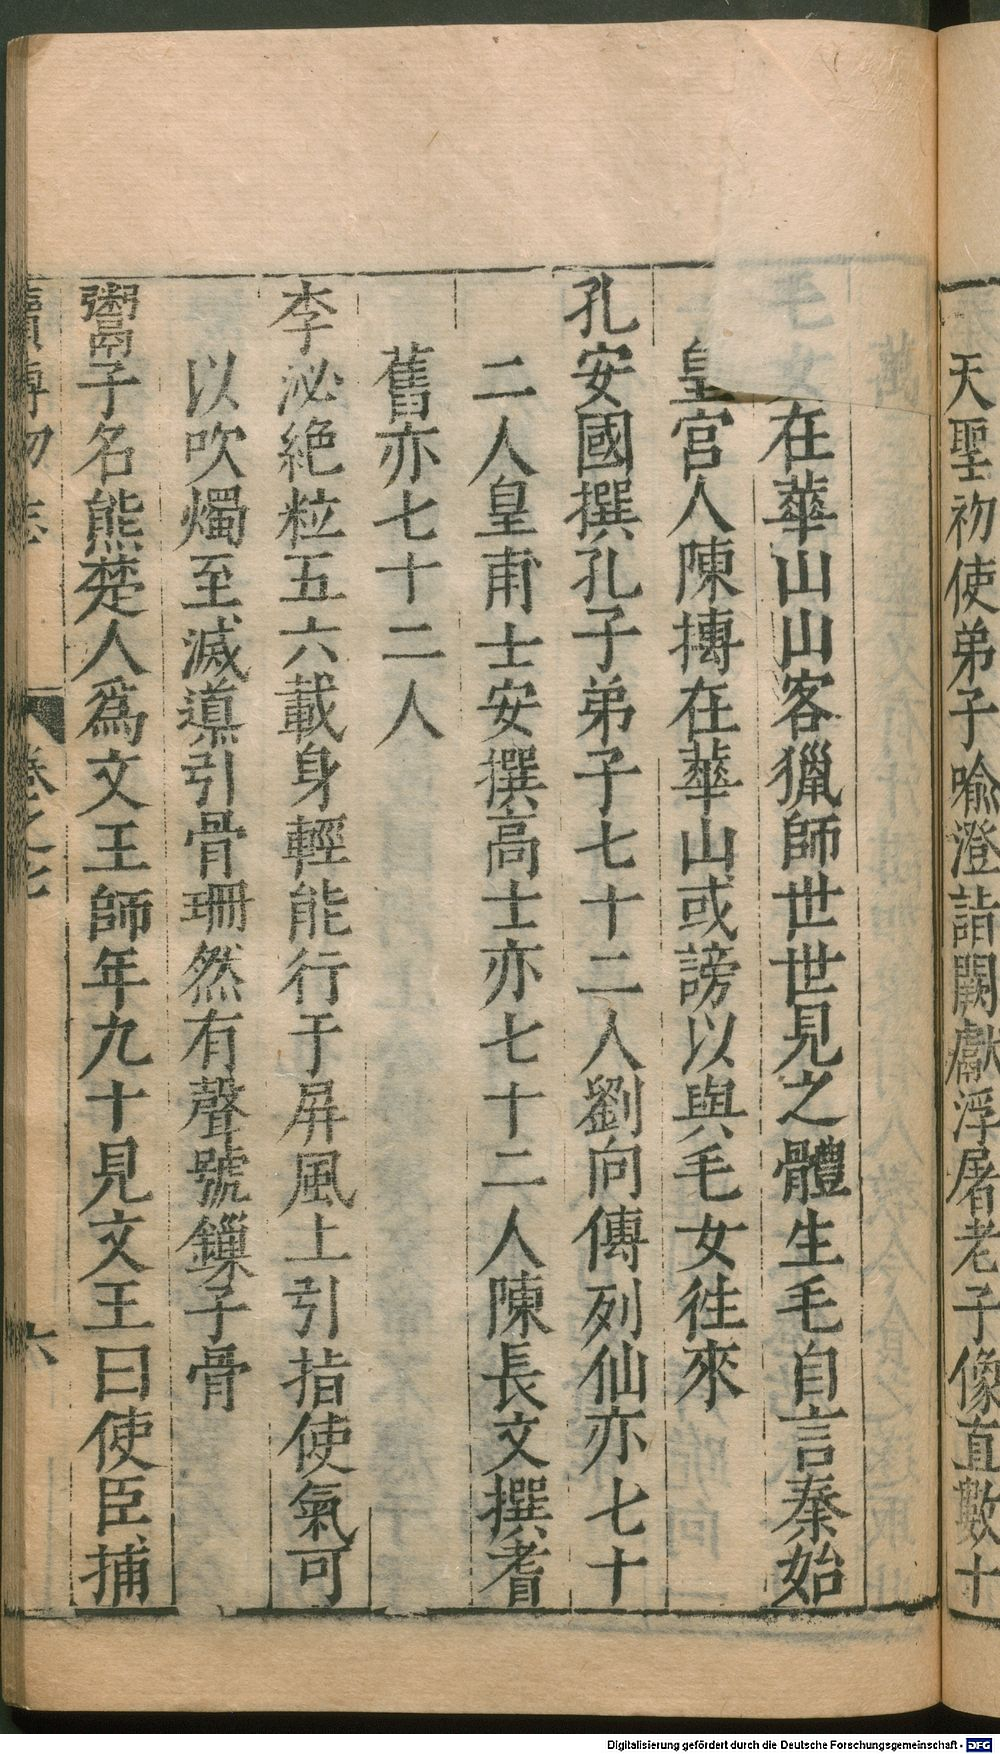 天聖初使弟子喩澄詣闕獻浮屠老子像直數十
在華山山客獵師世世見之體生毛自言秦始
皇宮人陳摶在華山或謗以與毛女徃來
孔安國撰孔子弟子七十二人劉向傳列仙亦七十
二人皇甫士安撰高士亦七十二人陳長文撰耆
舊亦七十二人
李泌絶粒五六載身輕能行于屏風上引指使氣可
以吹燭至滅導引骨珊然有聲號鏁子骨
鬻子名熊楚人爲文王師年九十見文王曰使臣捕
續博物志 卷之七 六
Digitalisierung gefördert durch die Deutsche Forschungsgemeinschaft - DFG